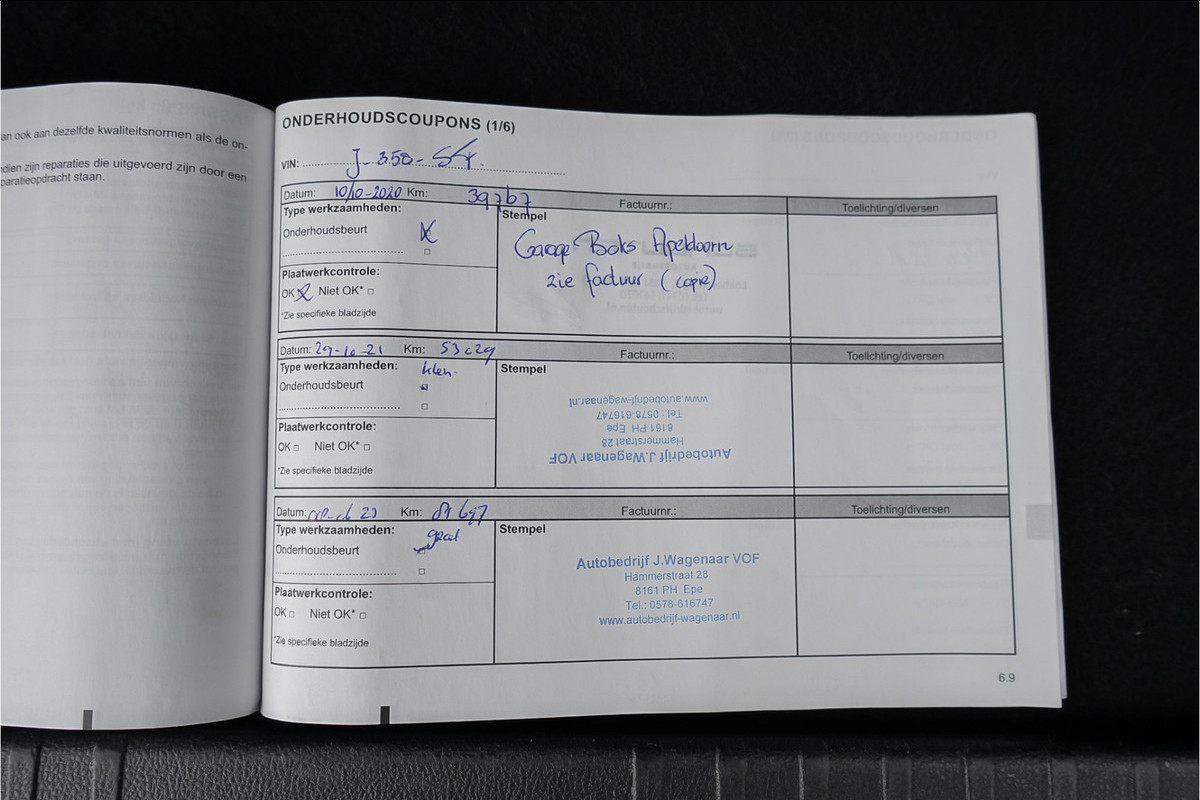 an ook aan dezelfde kwaliteitsnormen als de on-
dien zijn reparaties die uitgevoerd zijn door een
paratieopdracht staan.
ONDERHOUDSCOUPONS (1/6)
VIN: J-350-SX.
Datum: 10/10-2020 Km: 39767 Factuurnr.: Toelichting/diversen
Type werkzaamheden: Stempel
Onderhoudsbeurt
Garage Boks Apeldoorn
zie factuur (copie)
Plaatwerkcontrole:
OK Niet OK*
*Zie specifieke bladzijde
Datum: 29-10-21 Km: 53029 Factuurnr.: Toelichting/diversen
Type werkzaamheden: klein. Stempel
Onderhoudsbeurt
Autobedrijf J.Wagenaar VOF
Hammerstraat 28
8161 PH Epe
Tel.: 0578-616747
www.autobedrijf-wagenaar.nl
Plaatwerkcontrole:
OK Niet OK*
*Zie specifieke bladzijde
Datum: 23 Km: 697 Factuurnr.: Toelichting/diversen
Type werkzaamheden: groot Stempel
Onderhoudsbeurt
Autobedrijf J.Wagenaar VOF
Hammerstraat 28
8161 PH Epe
Tel.: 0578-616747
www.autobedrijf-wagenaar.nl
Plaatwerkcontrole:
OK Niet OK*
*Zie specifieke bladzijde
6.9